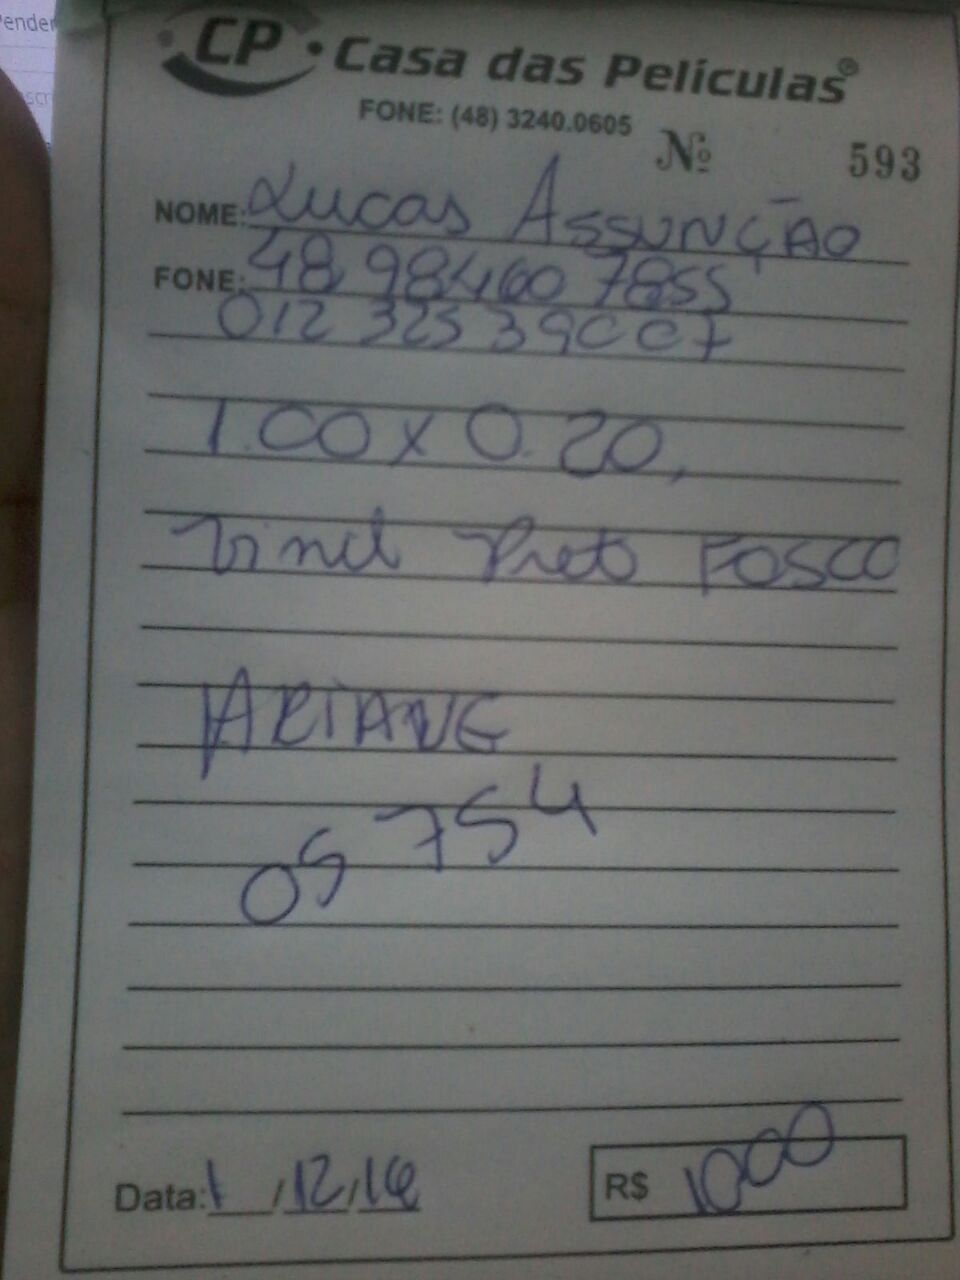 Pender
scr
CP • Casa das Películas®
FONE: (48) 3240.0605
Nº 593
NOME: Lucas Assunção
FONE: 48 98460 7855
012 325 39CC7
1.00 x 0.20,
Vinil Preto FOSCO
ARIANE
05 754
Data: 1 / 12 / 16
R$ 1000